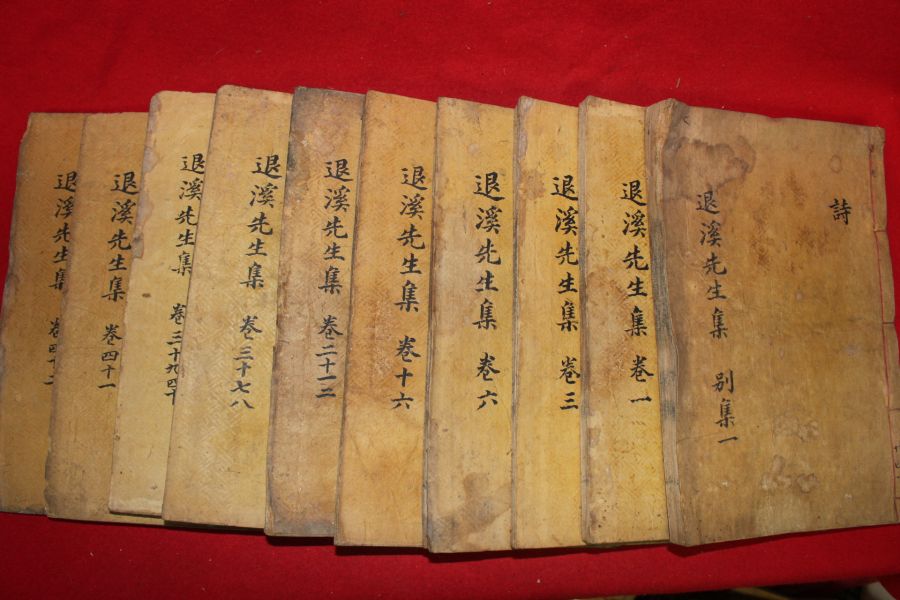 詩
退溪先生集 別集一
退溪先生集 卷一
退溪先生集 卷三
退溪先生集 卷六
退溪先生集 卷十六
退溪先生集 卷二十一二
退溪先生集 卷三十七八
退溪先生集 卷三十九四十
退溪先生集 卷四十一
退溪先生集 卷四十二